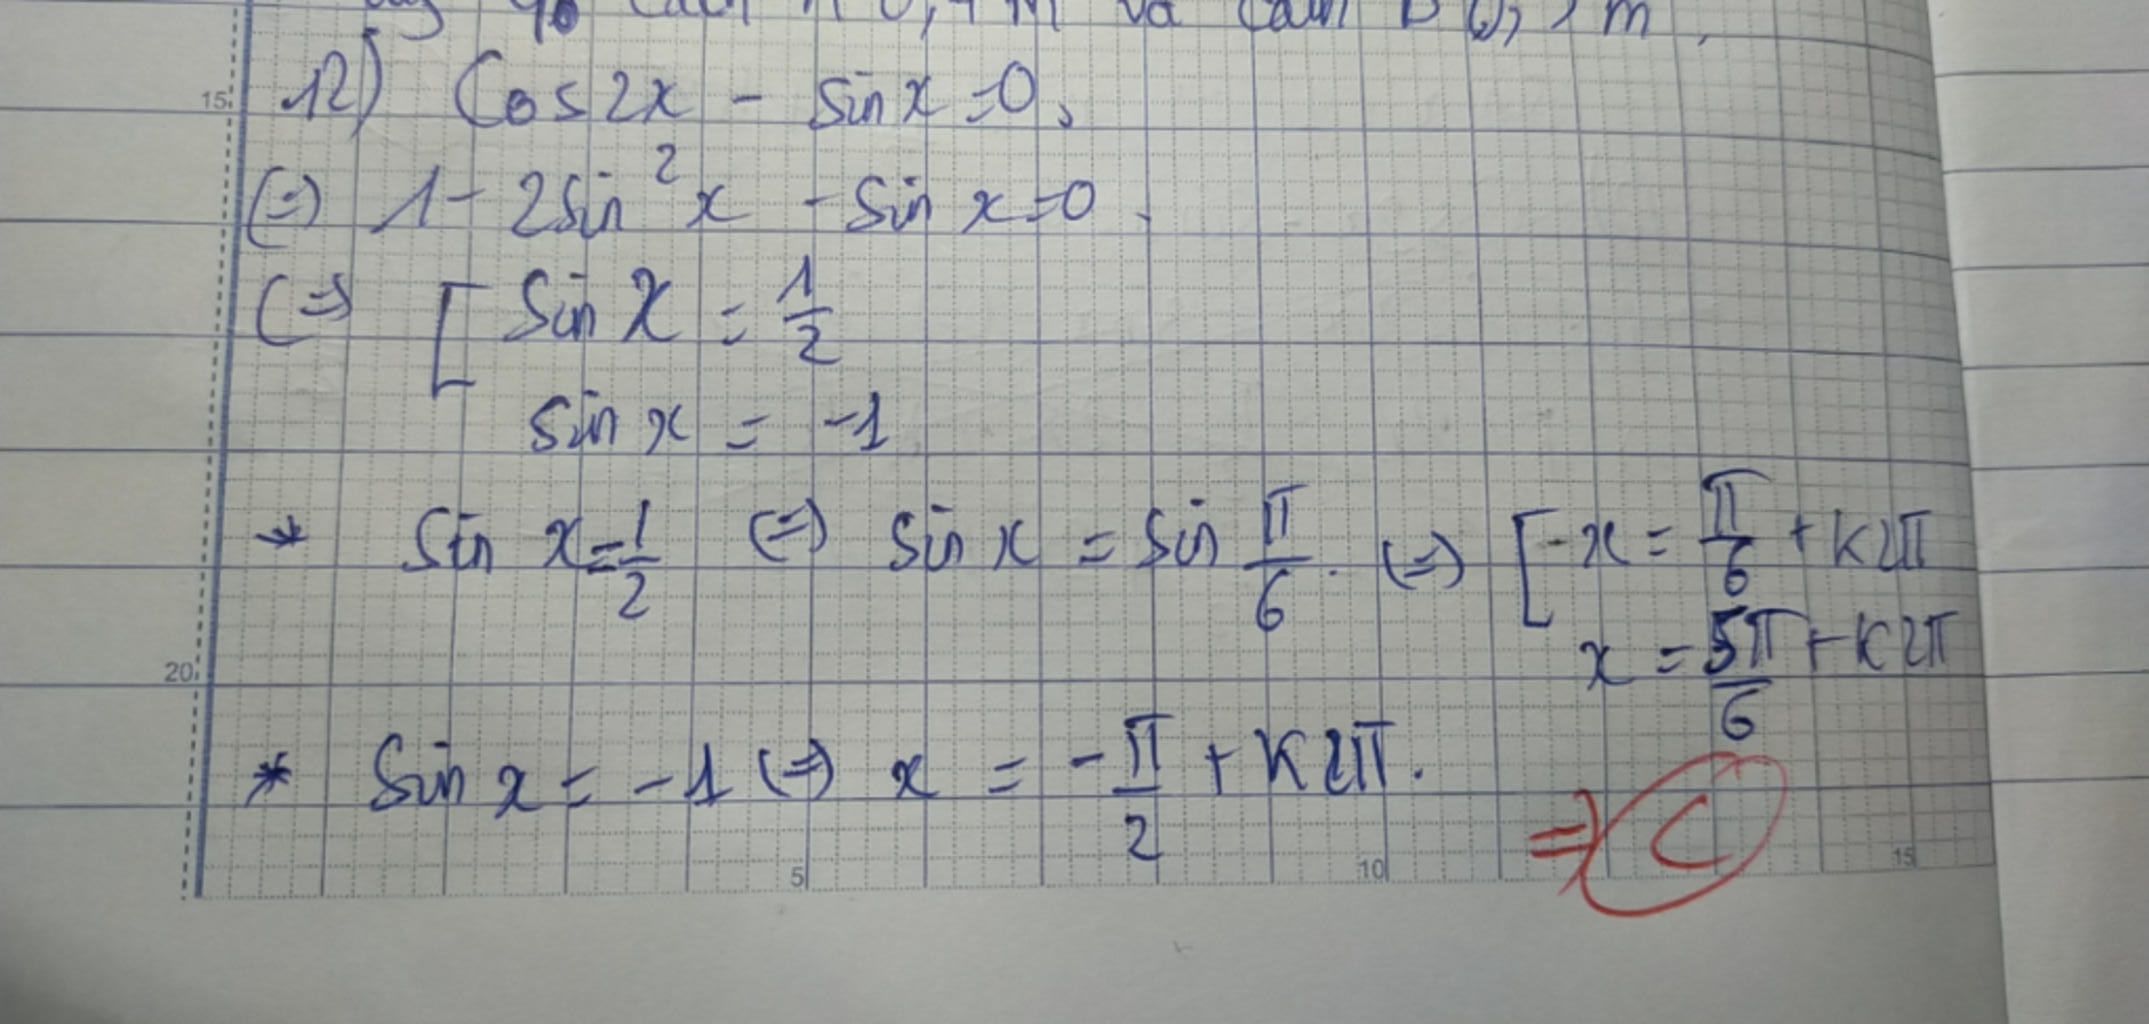 và
12) Cos2x - sin x = 0,
(=) 1 - 2sin²x - sin x = 0.
(=) [ sin x = 1/2
sin x = -1
* sin x = 1/2 (=) sin x = sin π/6. (=) [ - x = π/6 + k2π
x = 5π/6 + k2π
* sin x = -1 (=) x = -π/2 + k2π.
=> C
15
20
5
10
15